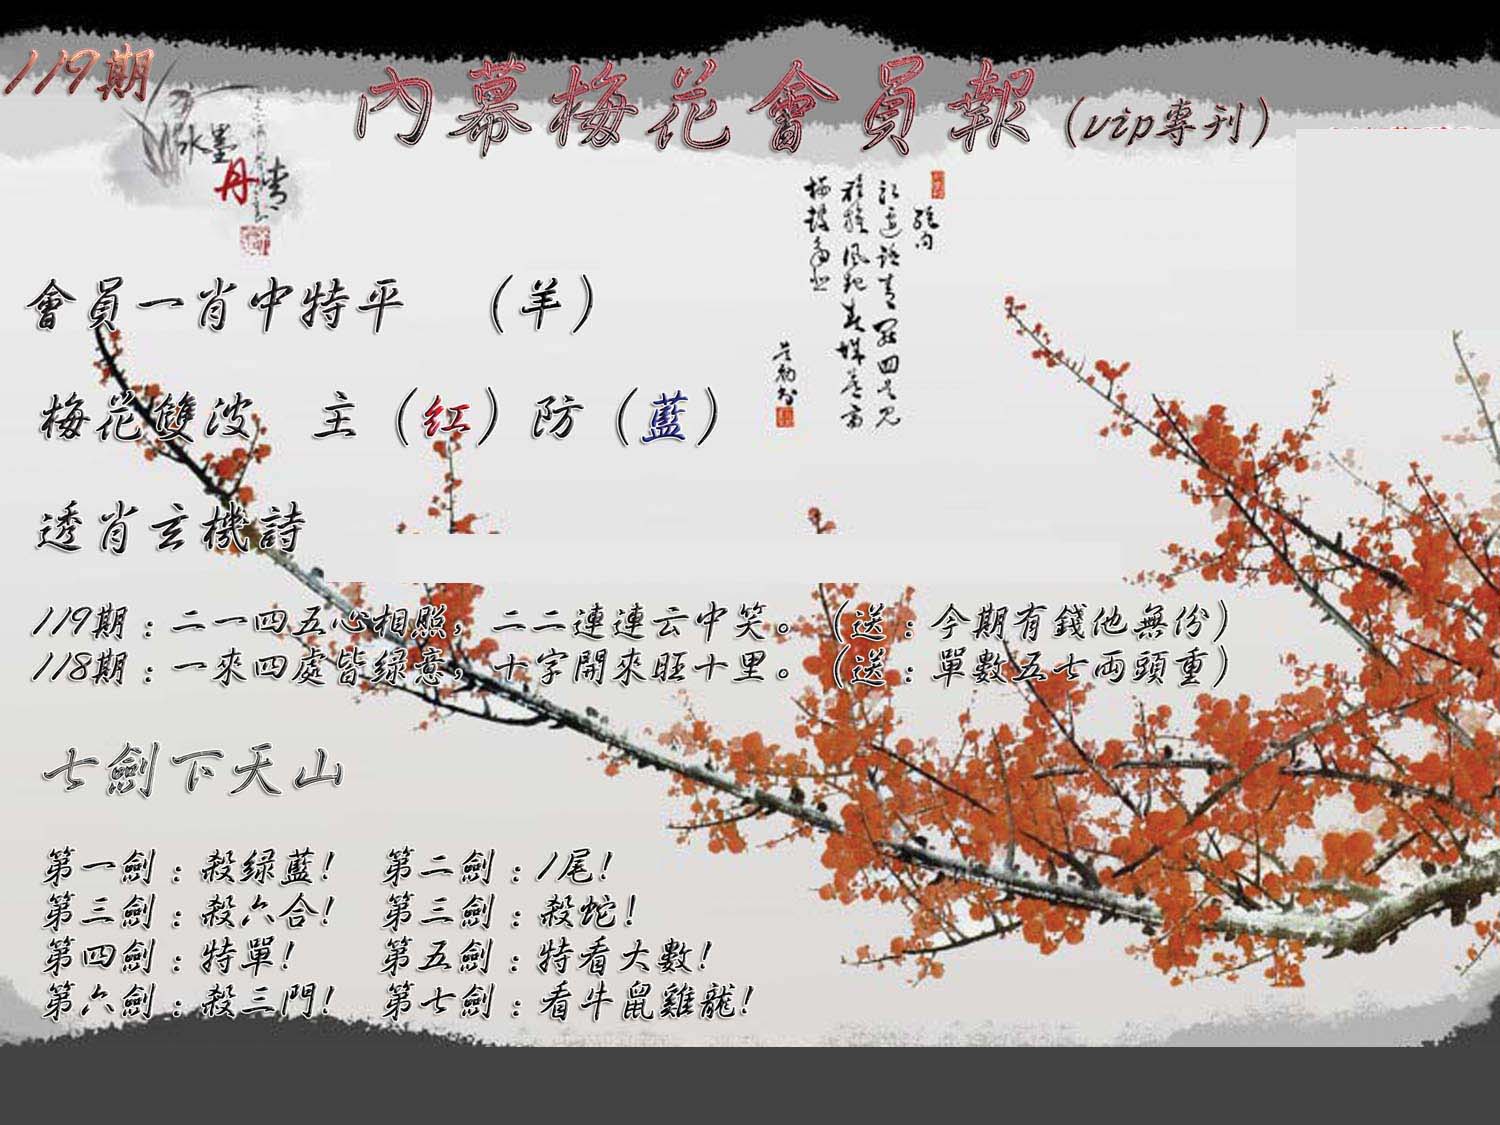 119期
內幕梅花會員報（vip專刊）
水墨
丹青
會員一肖中特平 （羊）
梅花雙波 主（紅）防（藍）
透肖玄機詩
119期：二一四五心相照，二二連連云中笑。（送：今期有錢他無份）
118期：一來四處皆绿意，十字開來旺十里。（送：單數五七兩頭重）
七劍下天山
第一劍：殺绿藍! 第二劍：1尾!
第三劍：殺六合! 第三劍：殺蛇!
第四劍：特單! 第五劍：特看大數!
第六劍：殺三門! 第七劍：看牛鼠雞龍!